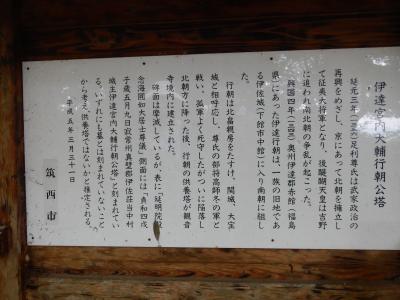 伊達宮内大輔行朝公塔
延元三年(一三三八)足利尊氏は武家政治の
再興をめざし、京にあって北朝を擁立し
て征夷大将軍となり、後醍醐天皇は吉野
に追われ南北朝の争乱が起こった。
興国四年(一三四三)奥州伊達郡赤館(福島
県)にあった伊達行朝は、一族の旧地であ
る伊佐城(下館市中館)に入り南朝に組し
た。
行朝は北畠親房をたすけ、関城、大宝
城と相呼応し、尊氏の部将高師冬の軍と
戦い、孤軍よく死守したがついに陥落し
北朝方に降った後、行朝の供養塔が観音
寺境内に建立された。
碑面は摩滅しているが、表に「延明院殿
念海圓如大居士尊儀」側面には「貞和四戊
子歳五月九日寂常州真壁郡伊佐荘当中村
城主伊達宮内大輔行朝公塔」と刻まれてい
る。いずれにも墓とは刻まれていないこと
から考え、供養塔ではないかと推定される。
平成五年三月三十一日
筑西市